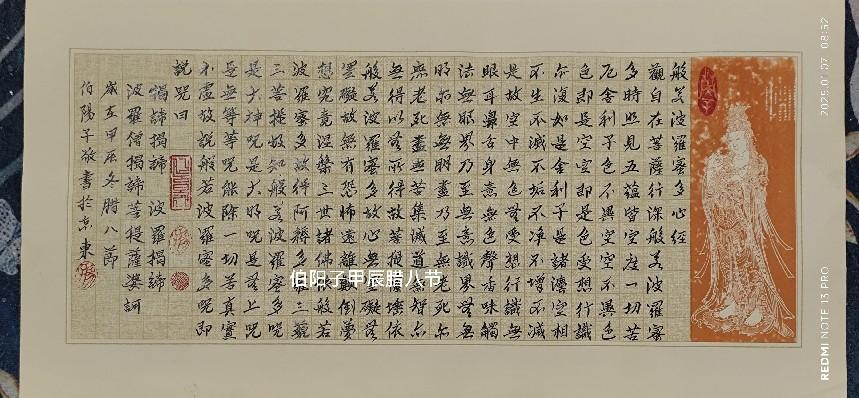 般若波羅蜜多心經
觀自在菩薩行深般若波羅蜜
多時照見五蘊皆空度一切苦
厄舍利子色不異空空不異色
色即是空空即是色受想行識
亦復如是舍利子是諸灋空相
不生不滅不垢不淨不增不減
是故空中無色無受想行識無
眼耳鼻舌身意無色聲香味觸
法無眼界乃至無意識界無無
明亦無無明盡乃至無老死亦
無老死盡無苦集滅道無智亦
無得以無所得故菩提薩埵依
般若波羅蜜多故心無罣礙無
罣礙故無有恐怖遠離顛倒夢
想究竟涅槃三世諸佛依般若
波羅蜜多故得阿耨多羅三藐
三菩提故知般若波羅蜜多咒
是大神咒是大明咒是無上咒
是無等等咒能除一切苦真實
不虛故說般若波羅蜜多咒即
說咒曰
揭諦揭諦 波羅揭諦
波羅僧揭諦菩提薩婆訶
歲在甲辰冬臘八節
伯陽子敬書於京東
伯阳子甲辰腊八节
2025.01.07 08:52
REDMI NOTE 13 PRO